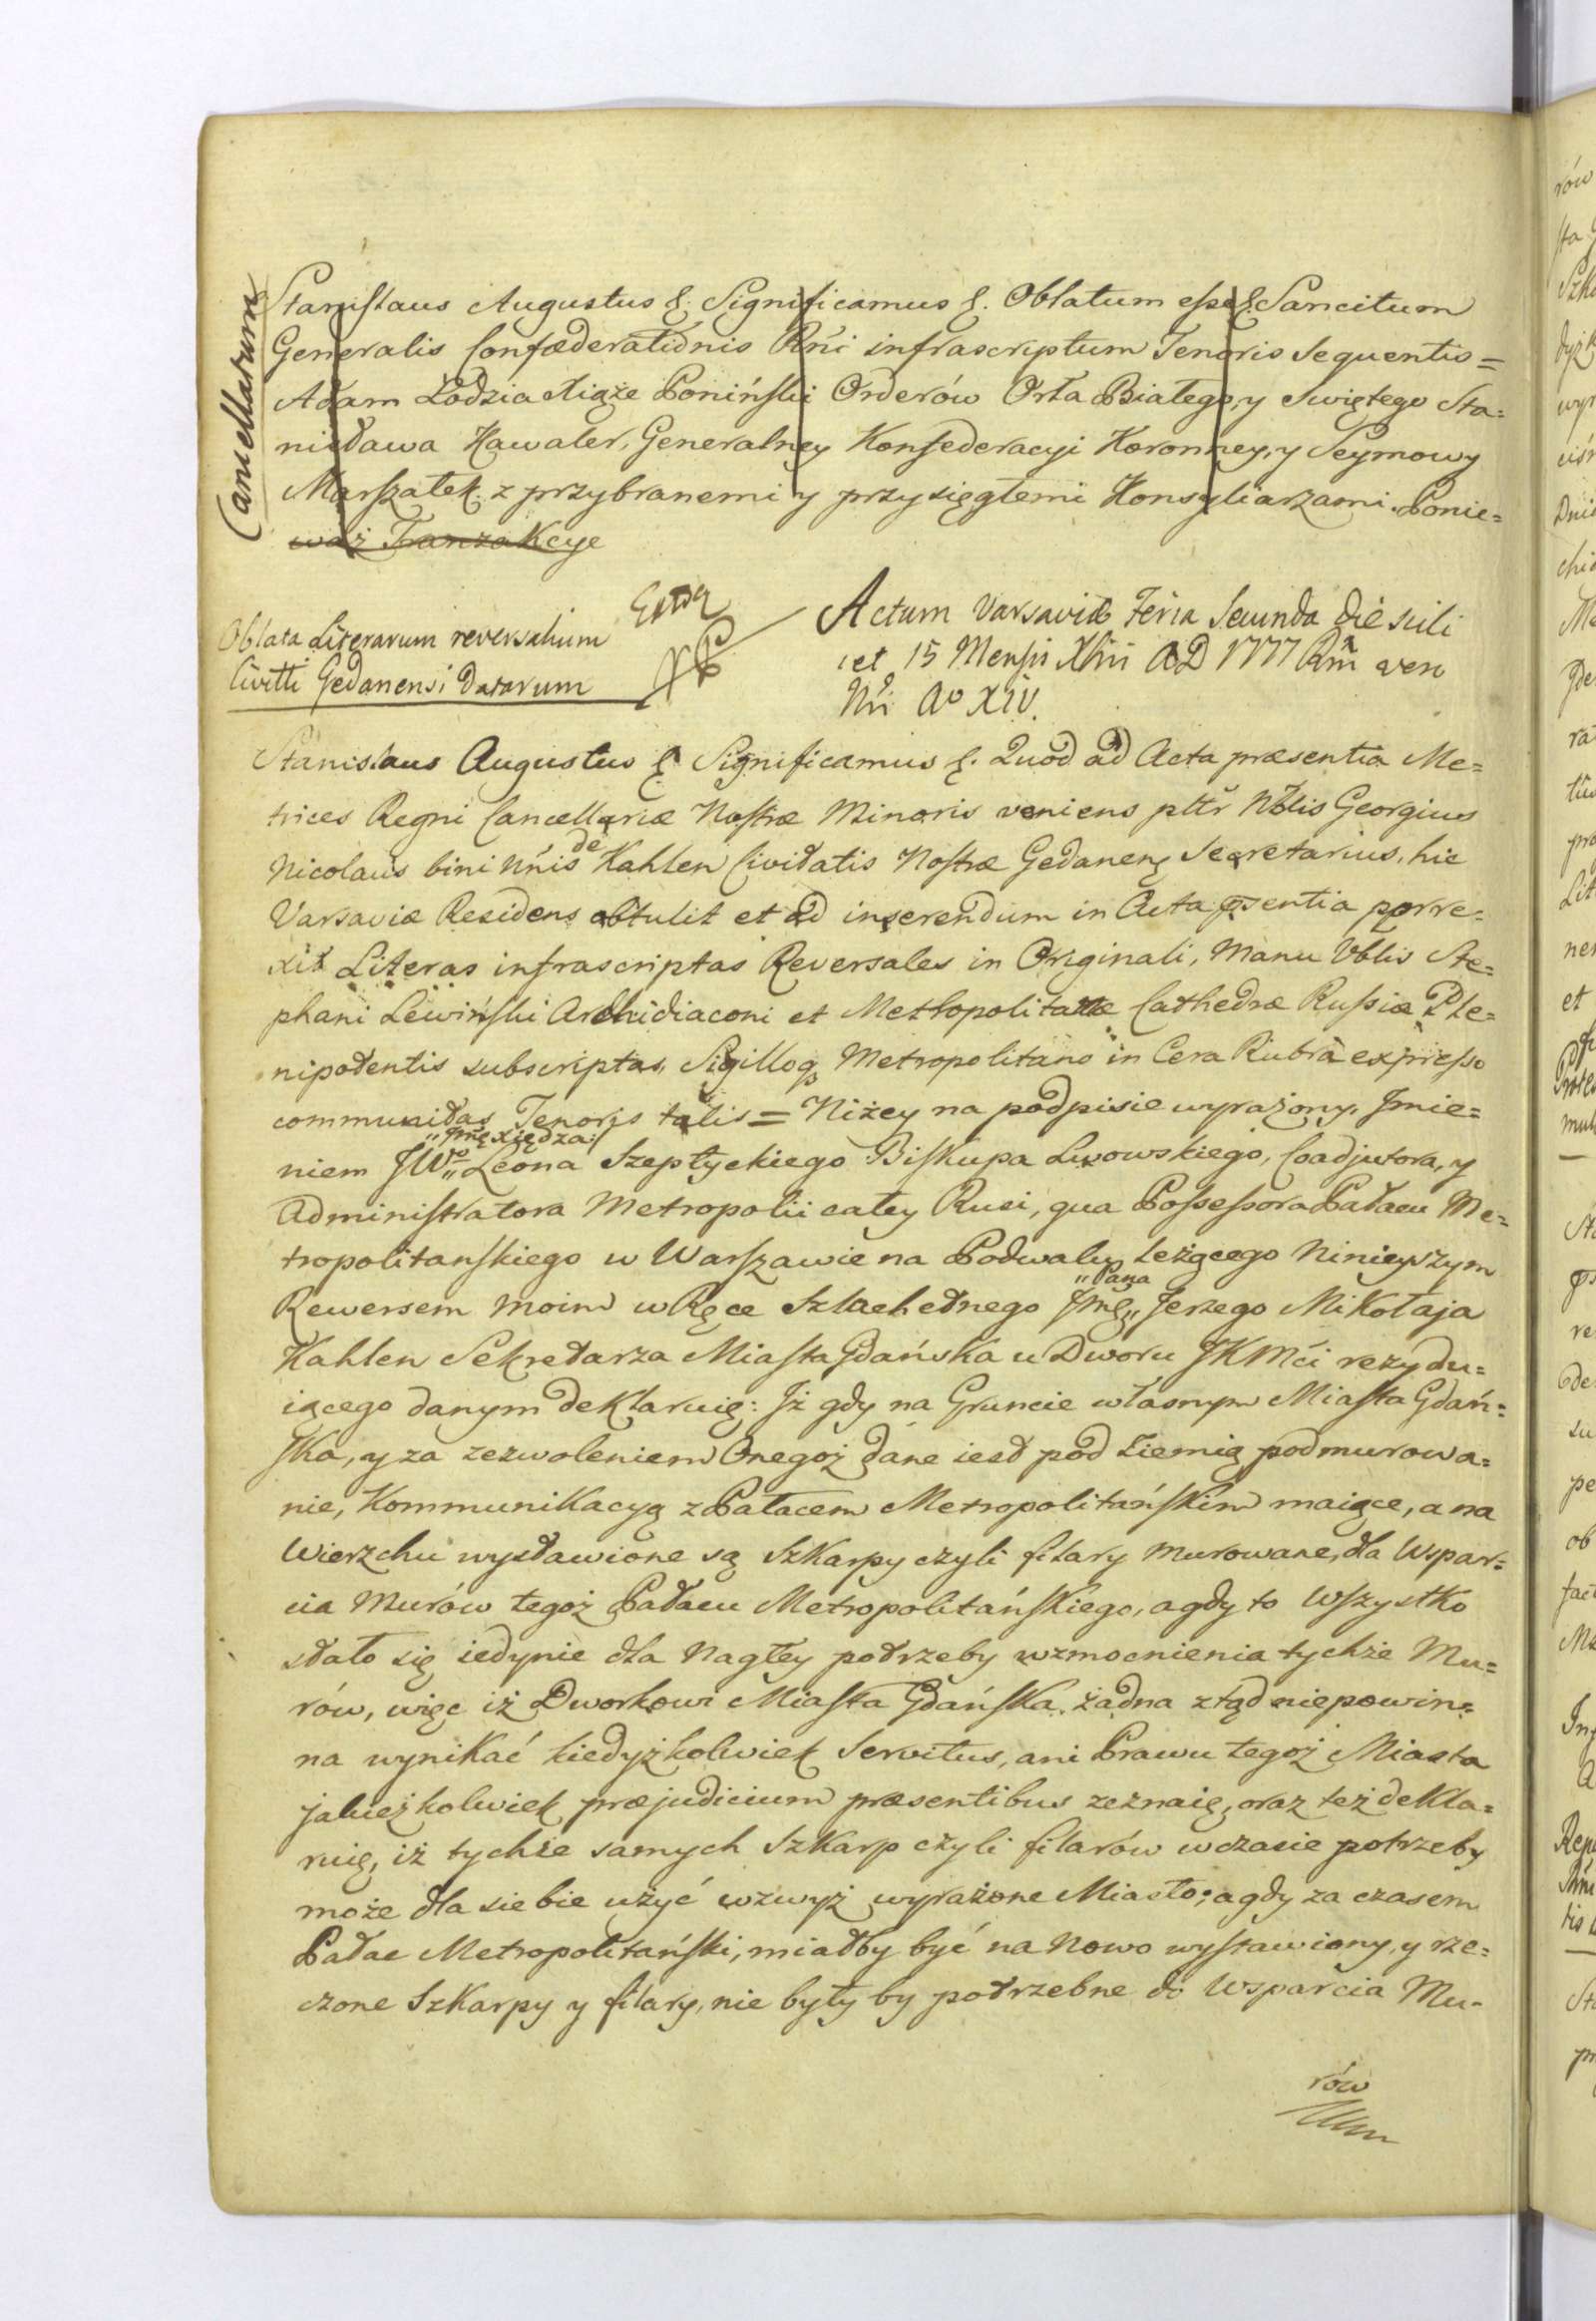 Cancellatum
Stanislaus Augustus &. Significamus &. Oblatum esse &. Sancitum
Generalis Confæderationis Rńi infrascriptum Tenoris Sequentis =
Adam Łodzia Xiąże Poniński Orderów Orła Białego, y Swiętego Sta=
nisława Kawaler, Generalney Konfederacyi Koronney, y Seymowy
Marszałek z przybranemi y przysięgłemi Konsyliarzami. Ponie=
waż Tranzakcye
Oblata Literarum reversalium
Civitti Gedanensi datarum
Extra
Actum Varsaviæ Feria Secunda die scili
cet 15 Mensis Xbris AD 1777 Rni vero
Nri Ao XIV.
Stanislaus Augustus &. Significamus &. Quod ad Acta præsentia Me=
trices Regni Cancellariæ Nostræ Minoris veniens pltr Nblis Georgius
Nicolaus bini Nnis de Kahlen Civitatis Nostræ Gedanen. Secretarius, hic
Varsaviæ Residens obtulit et ad inserendum in Acta pսentia porre=
xit Literas infrascriptas Reversales in Originali, Manu Vblis Ste=
phani Lewiński Archidiaconi et Metropolitanæ Cathedræ Russiæ Ple=
nipotentis subscriptas, Sigilloq Metropolitano in Cera Rubra expresso
communitas Tenoris talis = Niżey na podpisie wyrażony, Jmie=
niem JW „Jmę xiędza„ Leona Szeptyckiego Biskupa Lwowskiego, Coadjutora, y
Administratora Metropolii całey Rusi, qua Possessora Pałacu Me=
tropolitanskiego w Warszawie na Podwalu leżącego Ninieyszym
Rewersem moim w Ręce Szlachetnego Jmę „Pana„ Jerzego Mikołaja
Kahlen Sekretarza Miasta Gdańska u Dworu JKMći rezydu=
iącego danym deklaruię: Jż gdy na Gruncie własnym Miasta Gdań=
ska, y za zezwoleniem Onegoż dane iest pod Ziemią podmurowa=
nie, Kommunikacyą z Pałacem Metropolitańskim maiące, a na
Wierzchu wystawione są Szkarpy czyli filary murowane, dla Wspar=
cia Murów tegoż Pałacu Metropolitańskiego, a gdy to Wszystko
stało się iedynie dla Nagłey potrzeby wzmocnienia tychże Mu=
rów, więc iż Dworkowi Miasta Gdańska, żadna ztąd niepowin=
na wynikać kiedyżkolwiek Servitus, ani Prawu tegoż Miasta
jakieżkolwiek præjudicium præsentibus zeznaię, oraz też dekla=
ruię, iż tychże samych Szkarp czyli filarów wczasie potrzeby
może dla siebie użyć wzwyż wyrażone Miasto; a gdy za czasem
Pałac Metropolitański, miałby być na Nowo wystawiony, y rze=
czone Szkarpy y filary, nie były by potrzebne do Wsparcia Mu-
rów